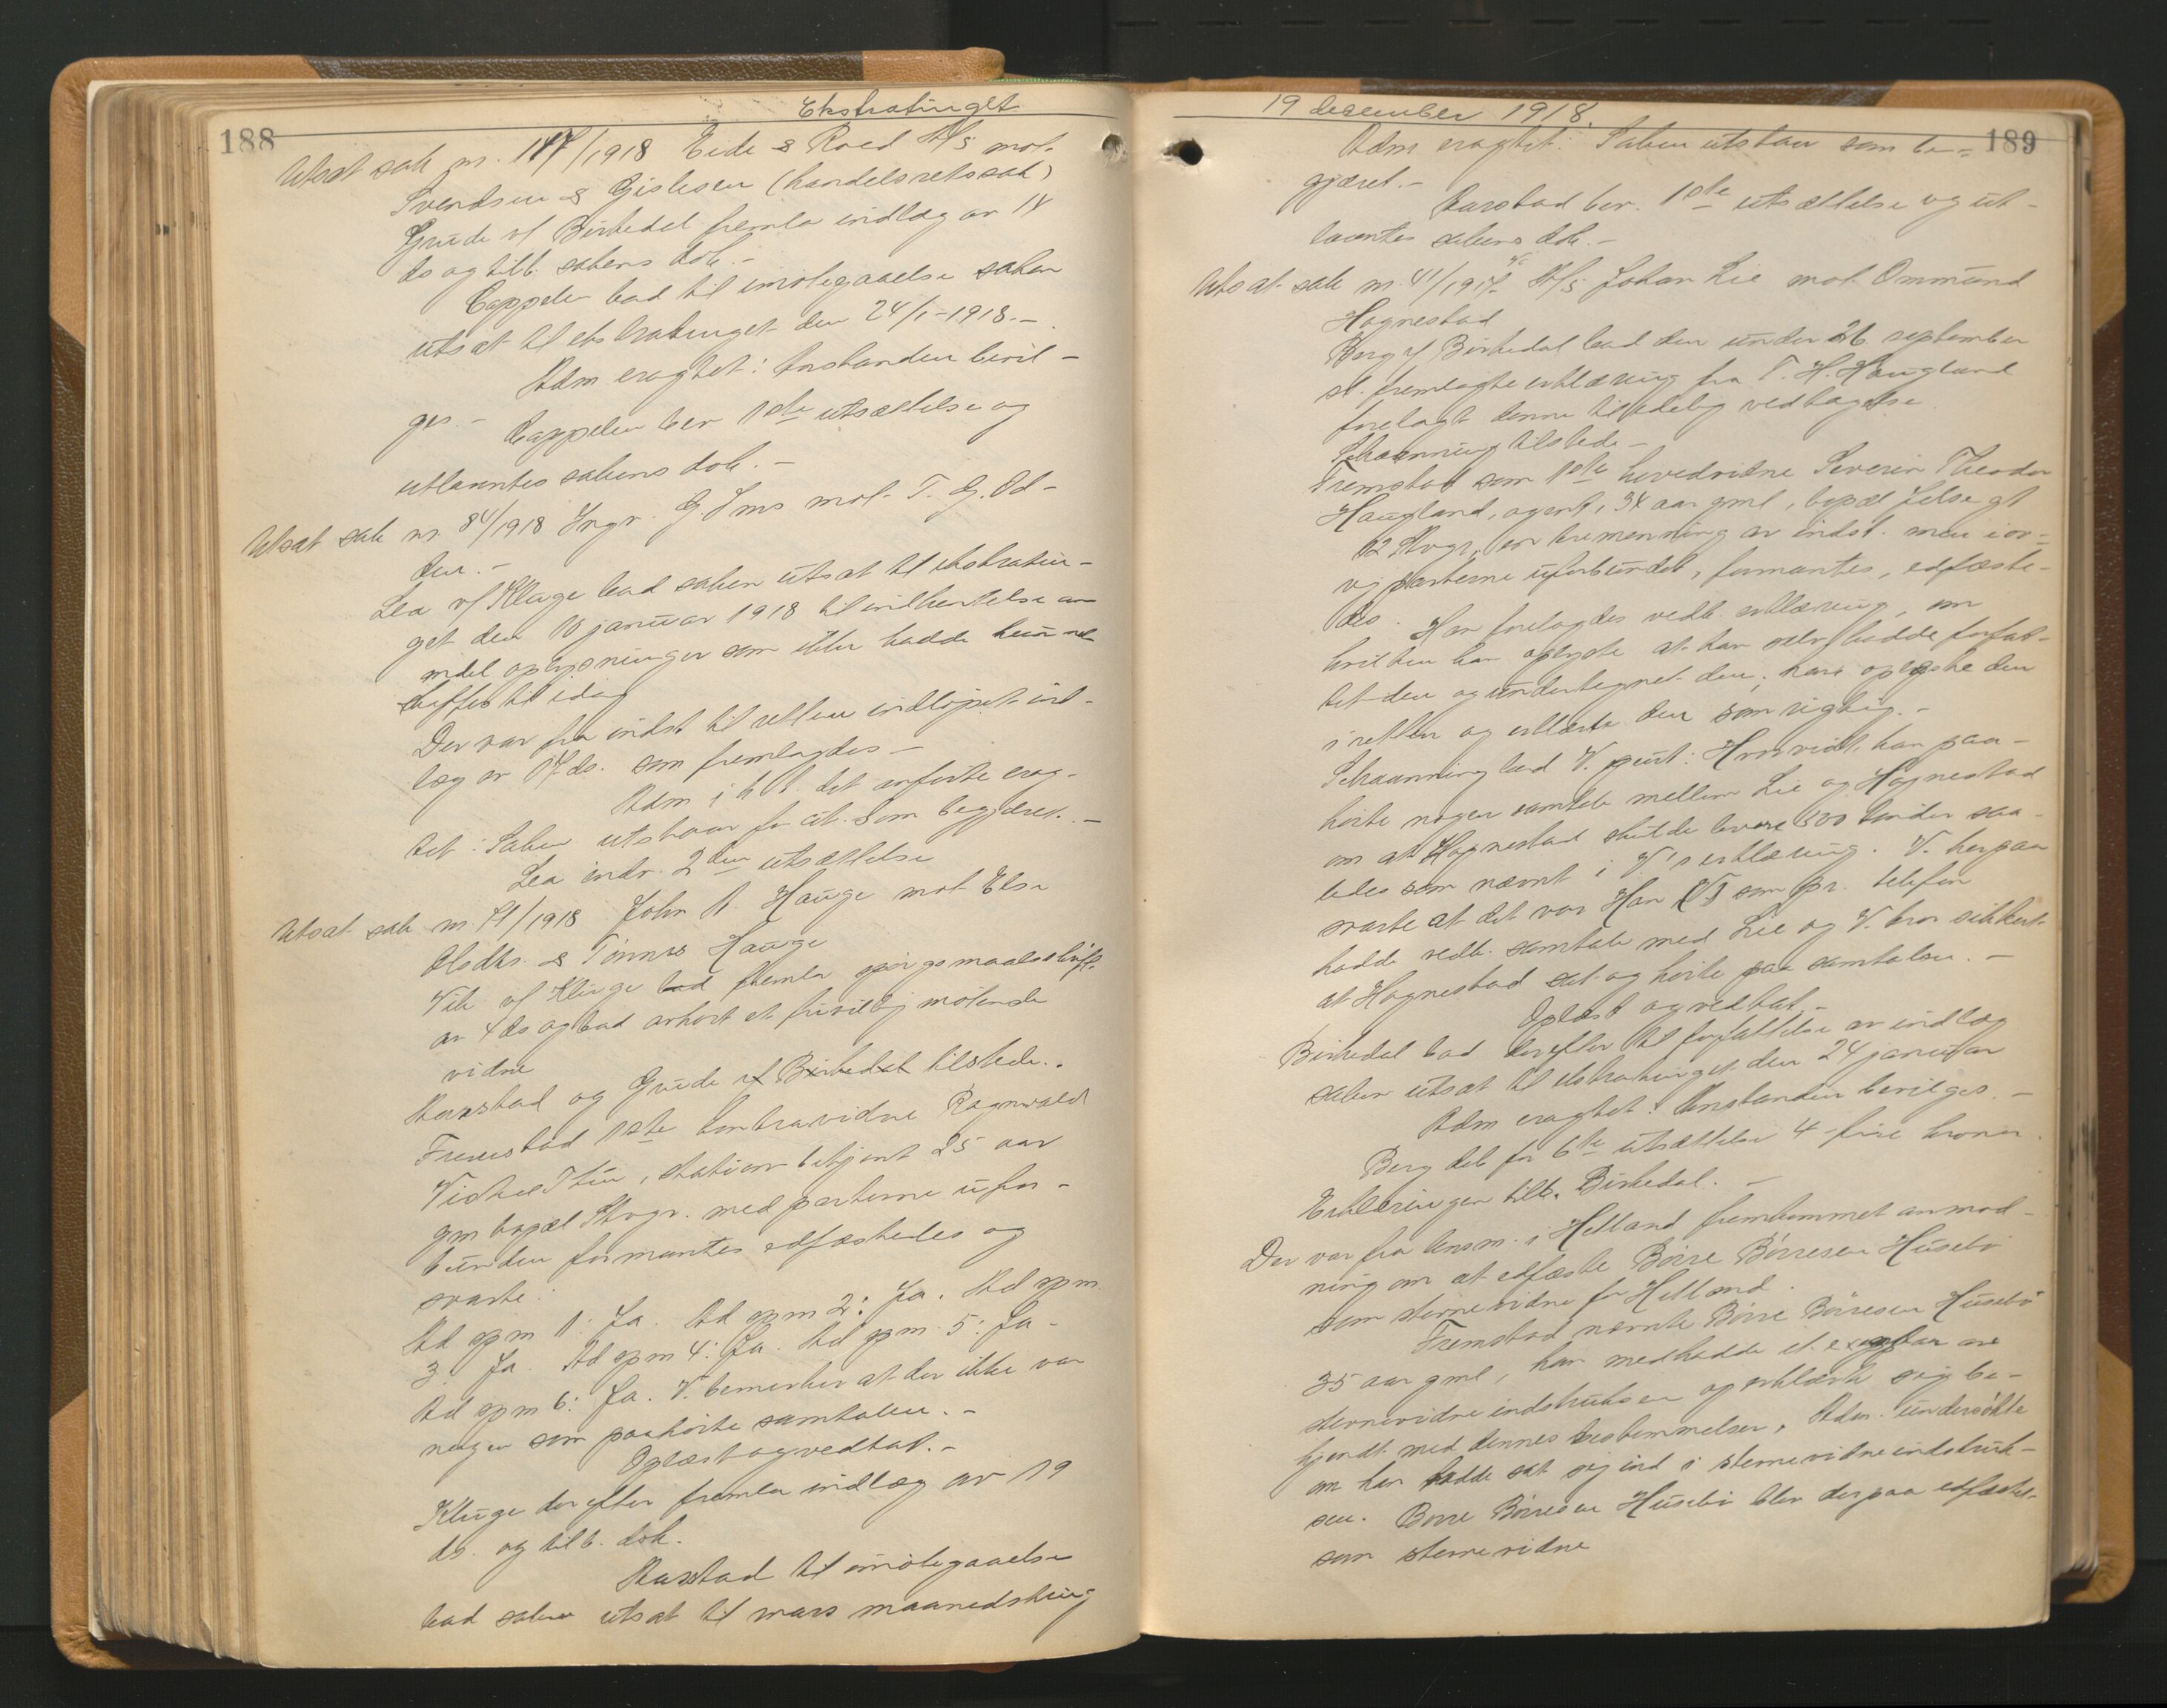 188
Ekstratinget
Utsat sak nr. 147/1918 Eide & Roed A/S mot
Svendsen & Gislesen (handelsretssak)
Grude vf Birkedal fremla indlæg av 14
ds og tilb. sakens dok. -
Cappelen bad til imøtegaaelse saken
utsat til ekstratinget den 24/1-1918. -
Adm eragtet: Anstanden bevil-
ges. -
Cappelen ber 1ste utsættelse og
utlaantes sakens dok. -
Utsat sak nr. 84/1918 Ingr. G. Ims mot T. G. Od-
den. -
Lea vf Kluge bad saken utsat til ekstratin-
get den 10 januar 1918 til indhentelse av
endel oplysninger som ikke hadde kunnet
skaffes til idag
Der var fra indst til retten indløpet ind-
læg av 17 ds. som fremlagdes -
Adm i h t det anførte erag-
tet: Saken utstaar for at. som begjæret. -
Lea indr. 2den utsættelse
Utsat sak nr 91/1918 John A. Hauge mot Else
Olsdtr. & Tønnes Hauge
Vik vf Kluge bad fremla spørgsmaalsskrift
av 4 ds og bad avhørt et frivillig møtende
vidne
Harstad og Grude vf Birkedal tilstede.
Fremstod 1ste kontravidne Ragnvald
stationsbetjent 25 aar
gm bopæl Stvgr. med parterne ufor-
bunden formantes edfæstedes og
svarte:
Ad spm 1: Ja. Ad spm 2: Ja. Ad spm
3: Ja. Ad spm 4: Ja. Ad spm 5: Ja -
Ad spm 6: Ja. V. bemerker at der ikke var
nogen som paahørte samtalen. -
Oplæst og vedtat. -
Kluge derefter fremla indlæg av 19
ds. og tilb. dok.
Harstad til imøtegaaelse
bad saken utsat til mars maanedsting
19 desember 1918.
189
Adm eragtet: Saken utstaar som be-
gjæret. -
Harstad ber. 1ste utsættelse og ut-
laantes sakens dok. -
Utsat sak nr. 41/1917 A/S Johan Lie mot Ommund
Hognestad
Berg vf Birkedal bad den under 26 september
st. fremlagte erklæring fra T. H. Haugland
forelagt denne til edelig vedtagelse.
Schanning tilstede -
Fremstod som 1ste hovedvidne Severin Theodor
Haugland, agent, 34 aar gml, bopæl
12 Stvgr, er tremenning av indst. men i øv-
rig parterne uforbundet, formantes, edfæste-
des. Han forelagdes vedk. erklæring, om
hvilken han oplyste at han selv hadde forfat-
tet den og undertegnet den; han oplæste den
i retten og erklærte den som rigtig. -
Schanning lod V. spurt: Hvorvidt han paa-
hørte nogen samtale mellem Lie og Hognestad
om at Hognestad skulde levere 500 tønder saa-
ledes som nævnt i V's erklæring. V. herpaa
svarte at det var Han (V) som pr. telefon
hadde vedk. samtale med Lie og V. tror sikkert
at Hognestad sat og hørte paa samtalen. -
Oplæst og vedtat. -
Birkedal bad derefter til forfattelse av indlæg
saken utsat til ekstratinget den 24 januar
Adm eragtet: Anstanden bevilges. -
Berg deb for 6te utsættelse 4 - fire kroner.
Erklæringen tilb. Birkedal. -
Der var fra lensm. i Hetland fremkommet anmod-
ning om at edfæste Børre Børresen Husebø
som stevnevidne for Hetland.
Fremstod nævnte Børre Børresen Husebø
35 aar gml, han medhadde et exemplar av
stevnevidneindstruksen og erklærte sig be-
kjendt med dennes bestemmelser. Adm. undersøkte
om han hadde sat sig ind i stevnevidneindstruk-
sen. Børre Børresen Husebø blev derpaa edfæstet
som stevnevidne